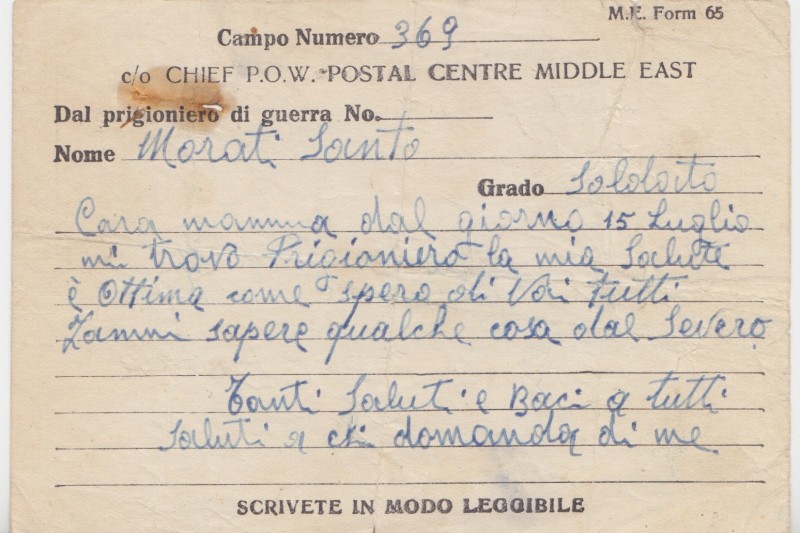 M.E. Form 65
Campo Numero 369
c/o CHIEF P.O.W. POSTAL CENTRE MIDDLE EAST
Dal prigioniero di guerra No.
Nome Morati Santo
Grado Soldato
Cara mamma dal giorno 15 Luglio
mi trovo Prigioniero la mia Salute
è Ottima come spero di Voi tutti
Fammi sapere qualche cosa dal Severo
Tanti Saluti e Baci a tutti
Saluti a chi domanda di me
SCRIVETE IN MODO LEGGIBILE